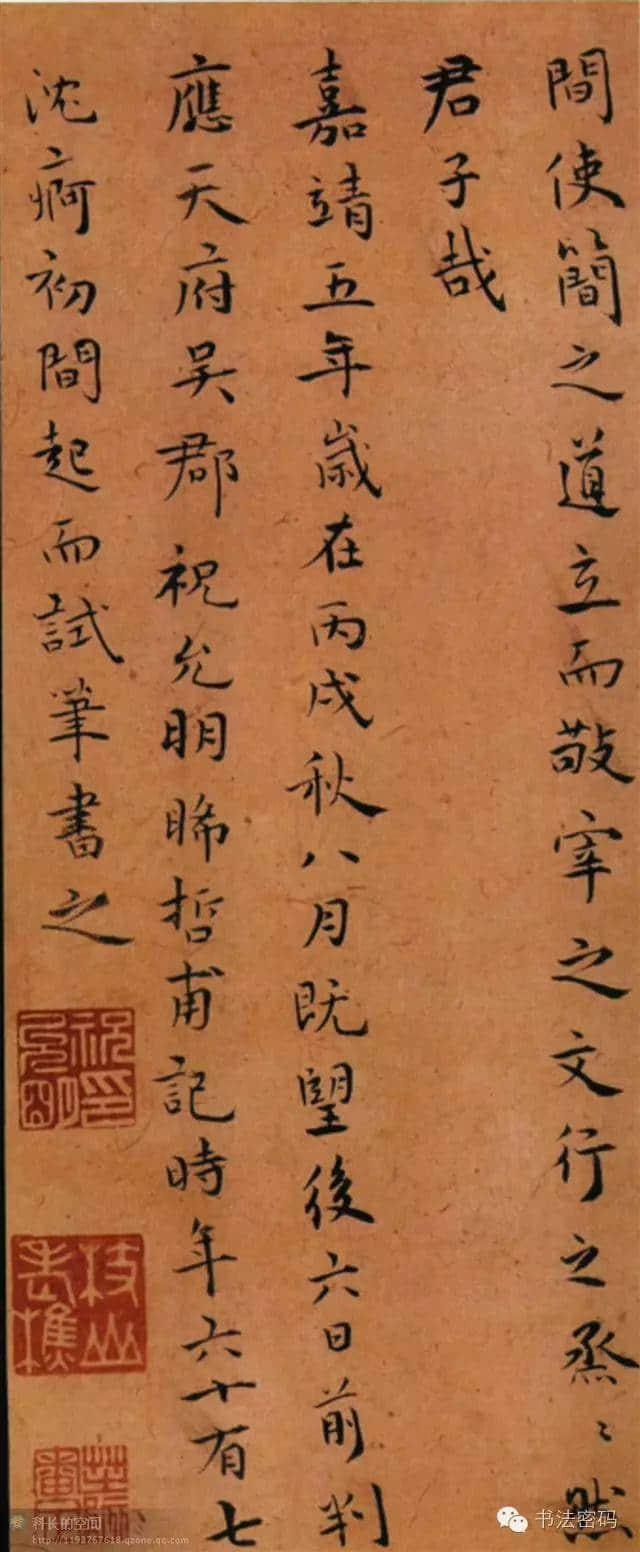 間使簡之道立而敬宰之文行之烝〻然
君子哉
嘉靖五年歲在丙戌秋八月既望後六日前判
應天府吳郡祝允明晞哲甫記時年六十有七
沈痾初間起而試筆書之
祝允明印
枝山老樵
科长的空间
http://1193767618.qzone.qq.com
书法密码